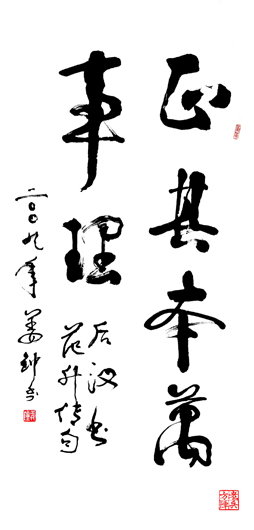 正其本萬
事理
后汉书
范升传句
二〇〇九年姜钟书